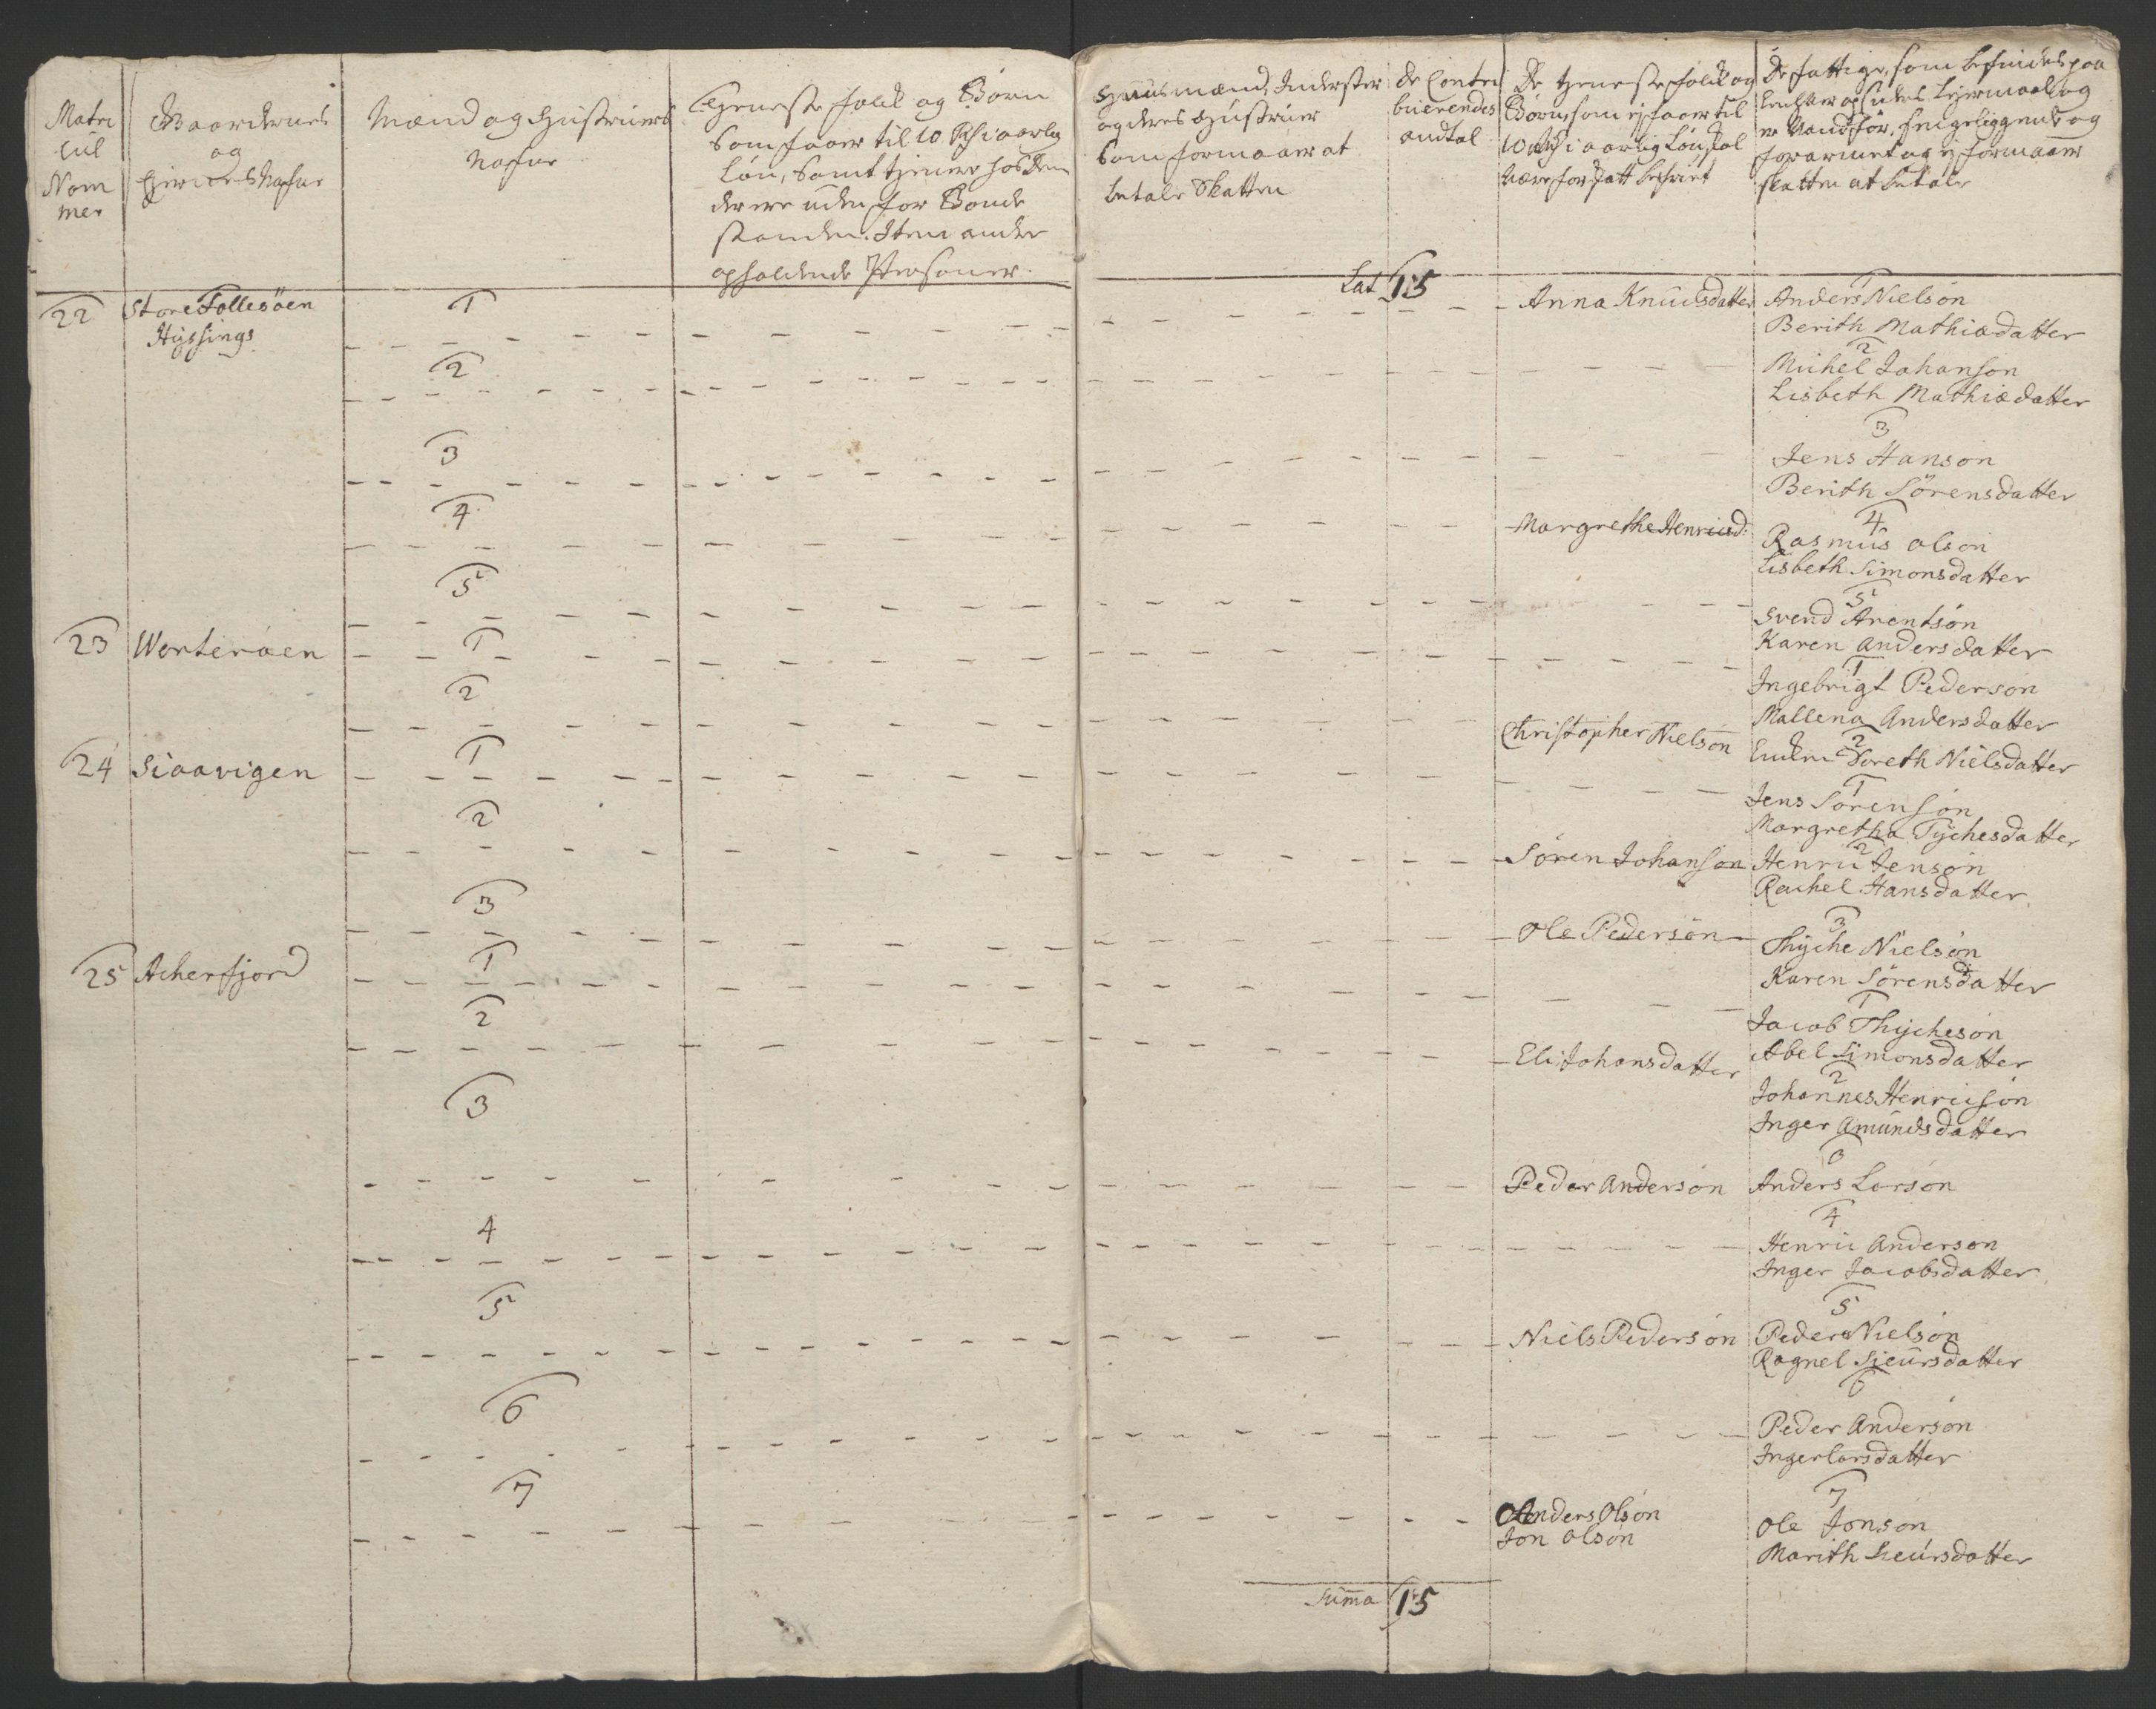 Matri
cul
Nom
mer
Gaardernes
og
Ejernes Nafne
Mænd og Hustruers
Nafne
Tjeneste folk og Børn
Som faaer til 10 Rdr i aarlig
Løn, Samt tjenere hos dem
der ere uden for Bonde
standen. Item andre
opholdende Personer.
Huusmænd, Inderster
og deres Hustruer
Som formaaer at
betale Skatten
De Contri
buerendes
andtal
De tjeneste folk og
Børn, som ej faaer til
10 Rdr i aarlig Løn, skal
være for Skatt befriet
De fattige, som befindes paa
og
er Vandfør, sengeliggende og
forarmet og ej formaaer
skatten at betale
Lat 15
22 Store Follesöen
Hysings
1
Anna Knudsdatter
1
Anders Nielson
Berith Mathiædatter
2
2
Michel Johanson
Lisbeth Mathiædatter
3
3
Jens Hanson
Berith Sörensdatter
4
Margrethe Henricsd:
4
Rasmus Olson
Lisbeth Simonsdatter
5
5
Svend Arentson
Karen Andersdatter
23 Worteröen
1
1
Ingebrigt Pederson
Mallena Andersdatter
2
Christopher Nielson
2
Enken Doreth Nielsdatter
24 Siaavigen
1
1
Jens Sörenson
Margretha Tychesdatter
2
Sören Johanson
2
Henric Jenson
Rachel Hansdatter
3
Ole Pederson
3
Thyche Nielson
Karen Sörensdatter
25 Acherfjord
1
1
Jacob Thycheson
Abel Simonsdatter
2
Eli Johansdatter
2
Johannes Henricson
Inger Amundsdatter
3
Peder Anderson
3
Anders Larson
4
4
Henric Anderson
Inger Jacobsdatter
5
Niels Pederson
5
Peder Nielson
Ragnel Sieursdatter
6
6
Peder Anderson
Inger Larsdatter
7
Anders Olson
Jon Olson
7
Ole Jonson
Marith Sieursdatter
Summa 15